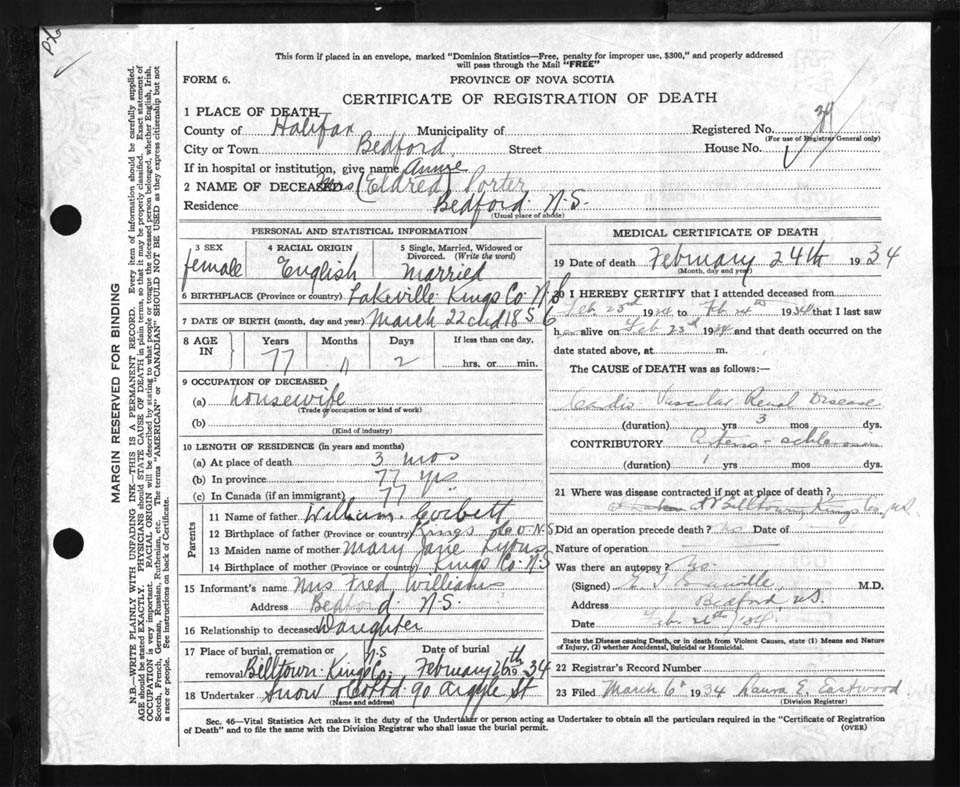 This form if placed in an envelope, marked "Dominion Statistics—Free, penalty for improper use, $300," and properly addressed
will pass through the Mail "FREE"
FORM 6. PROVINCE OF NOVA SCOTIA
CERTIFICATE OF REGISTRATION OF DEATH
1 PLACE OF DEATH
County of Halifax Municipality of Registered No. 34
(For use of Registrar General only)
City or Town Bedford Street House No.
If in hospital or institution, give name
Annie
2 NAME OF DECEASED Mrs (Eldred) Porter
Residence Bedford N.S.
(Usual place of abode)
PERSONAL AND STATISTICAL INFORMATION
3 SEX 4 RACIAL ORIGIN 5 Single, Married, Widowed or Divorced. (Write the word)
female English Married
6 BIRTHPLACE (Province or country) Lakeville Kings Co N.S
7 DATE OF BIRTH (month, day and year) March 22 1856
8 AGE IN Years Months Days If less than one day,
77 11 2 hrs. or min.
9 OCCUPATION OF DECEASED
(a) housewife
(Trade or occupation or kind of work)
(b)
(Kind of industry)
10 LENGTH OF RESIDENCE (in years and months)
(a) At place of death 3 mos
(b) In province 77 yrs
(c) In Canada (if an immigrant) 77
Parents
11 Name of father William Corbett
12 Birthplace of father (Province or country) Kings Co N.S
13 Maiden name of mother Mary Jane
14 Birthplace of mother (Province or country) Kings Co. N.S
15 Informant's name Mrs Fred Williams
Address Bedford N.S.
16 Relationship to deceased Daughter
17 Place of burial, cremation or removal Billtown Kings Co. N.S Date of burial February 26th 1934
18 Undertaker Snow & Co Ltd 90 Argyle St
(Name and address)
MEDICAL CERTIFICATE OF DEATH
19 Date of death February 24th 1934
(Month, day and year)
20 I HEREBY CERTIFY that I attended deceased from
Feb 23rd 1934 to Feb 24 1934 that I last saw
h alive on Feb 23d 1934 and that death occurred on the
date stated above, at m.
The CAUSE of DEATH was as follows:—
Cardio Vascular Renal Disease
(duration) yrs 3 mos dys.
CONTRIBUTORY Arterio-sclerosis
(duration) 1 yrs mos dys.
21 Where was disease contracted if not at place of death?
At Billtown, Kings Co, N.S.
Did an operation precede death? no Date of
Nature of operation
Was there an autopsy? no.
(Signed) M.D.
Address Bedford, N.S.
Date Feb. 26th/34
State the Disease causing Death, or in death from Violent Causes, state (1) Means and Nature
of Injury, (2) whether Accidental, Suicidal or Homicidal.
22 Registrar's Record Number
23 Filed March 6th 1934 Laura E. Eastwood.
(Division Registrar)
Sec. 46—Vital Statistics Act makes it the duty of the Undertaker or person acting as Undertaker to obtain all the particulars required in the "Certificate of Registration
of Death" and to file the same with the Division Registrar who shall issue the burial permit. (OVER)
MARGIN RESERVED FOR BINDING
N.B.—WRITE PLAINLY WITH UNFADING INK—THIS IS A PERMANENT RECORD. Every item of information should be carefully supplied.
AGE should be stated EXACTLY. PHYSICIANS should STATE CAUSE OF DEATH in plain terms, so that it may be properly classified. Exact statement of
OCCUPATION is very important. RACIAL ORIGIN will be described by stating to what people or tongue the deceased person belonged, whether English, Irish,
Scotch, French, German, Russian, Ruthenian, etc. The terms "AMERICAN" or "CANADIAN" SHOULD NOT BE USED as they express citizenship but not
a race or people. See instructions on back of Certificate.